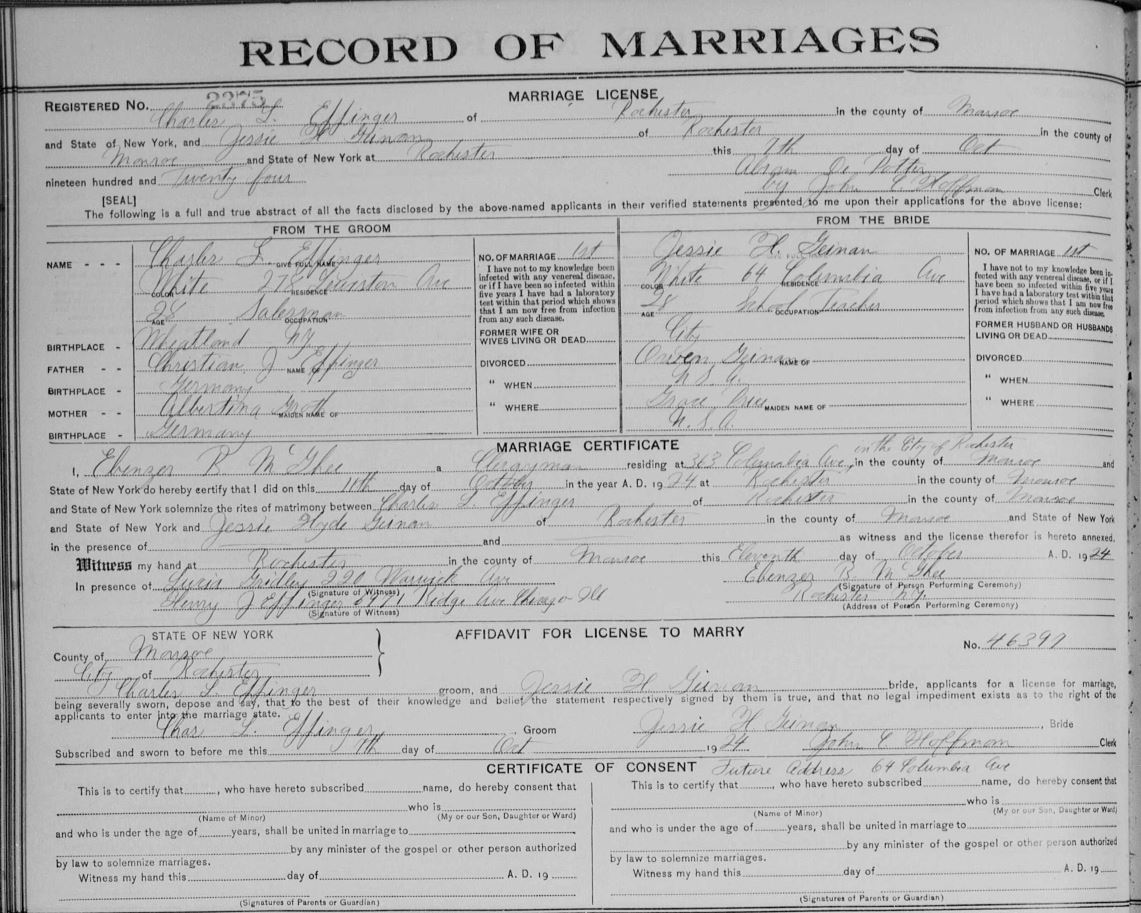 RECORD OF MARRIAGES
MARRIAGE LICENSE
REGISTERED No. 2375
Charles L. Effinger of Rochester in the county of Monroe
and State of New York, and Jessie H. Guinan of Rochester in the county of
Monroe and State of New York at Rochester this 9th day of Oct
nineteen hundred and Twenty four Abram De Potter
by John C Hoffman Clerk
[SEAL]
The following is a full and true abstract of all the facts disclosed by the above-named applicants in their verified statements presented to me upon their applications for the above license:
FROM THE GROOM
NAME - - - Charles L. Effinger
GIVE FULL NAME
White 278 Lewiston Ave
COLOR RESIDENCE
28 Salesman
AGE OCCUPATION
BIRTHPLACE - Wheatland N.Y.
FATHER - - Christian J Effinger
NAME OF
BIRTHPLACE - Germany
MOTHER - - Albertina Groth
MAIDEN NAME OF
BIRTHPLACE - Germany
NO. OF MARRIAGE 1st
I have not to my knowledge been
infected with any venereal disease,
or if I have been so infected within
five years I have had a laboratory
test within that period which shows
that I am now free from infection
from any such disease.
FORMER WIFE OR
WIVES LIVING OR DEAD
DIVORCED
" WHEN
" WHERE
FROM THE BRIDE
Jessie H. Guinan
White 64 Columbia Ave
COLOR RESIDENCE
28 School Teacher
AGE OCCUPATION
City
Guinan
NAME OF
U.S.A.
Grace Price
MAIDEN NAME OF
U.S.A.
NO. OF MARRIAGE 1st
I have not to my knowledge been in-
fected with any venereal disease,
or if I have been so infected within
five years I have had a laboratory
test within that period which shows
that I am now free from infection
from any such disease.
FORMER HUSBAND OR HUSBANDS
LIVING OR DEAD
DIVORCED
" WHEN
" WHERE
MARRIAGE CERTIFICATE
in the City of Rochester
I, Ebenzer R. McGhee a Clergyman residing at 363 Columbia Ave, in the county of Monroe and
State of New York do hereby certify that I did on this 11th day of October in the year A. D. 1924 at Rochester in the county of Monroe
and State of New York solemnize the rites of matrimony between Charles L Effinger of Rochester in the county of Monroe
and State of New York and Jessie Hyde Guinan of Rochester in the county of Monroe and State of New York
in the presence of and as witness and the license therefor is hereto annexed.
Witness my hand at Rochester in the county of Monroe this Eleventh day of October A. D. 1924
In presence of Gridley 220 Warwick Ave Ebenzer R. McGhee
(Signature of Witness) (Signature of Person Performing Ceremony)
Henry J Effinger Ridge Ave Chicago Ill Rochester N.Y.
(Signature of Witness) (Address of Person Performing Ceremony)
STATE OF NEW YORK
AFFIDAVIT FOR LICENSE TO MARRY
No. 46397
County of Monroe
City of Rochester
Charles L. Effinger groom, and Jessie H Guinan bride, applicants for a license for marriage,
being severally sworn, depose and say, that to the best of their knowledge and belief the statement respectively signed by them is true, and that no legal impediment exists as to the right of the
applicants to enter into the marriage state.
Chas L. Effinger Groom Jessie H Guinan, Bride
Subscribed and sworn to before me this 9th day of Oct 1924 John C Hoffman Clerk
CERTIFICATE OF CONSENT Future Address 64 Columbia Ave
This is to certify that, who have hereto subscribed name, do hereby consent that
who is
(Name of Minor) (My or our Son, Daughter or Ward)
and who is under the age of years, shall be united in marriage to
by any minister of the gospel or other person authorized
by law to solemnize marriages.
Witness my hand this day of A. D. 19
(Signatures of Parents or Guardian)
This is to certify that, who have hereto subscribed name, do hereby consent that
who is
(Name of Minor) (My or our Son, Daughter or Ward)
and who is under the age of years, shall be united in marriage to
by any minister of the gospel or other person authorized
by law to solemnize marriages.
Witness my hand this day of A. D. 19
(Signatures of Parents or Guardian)